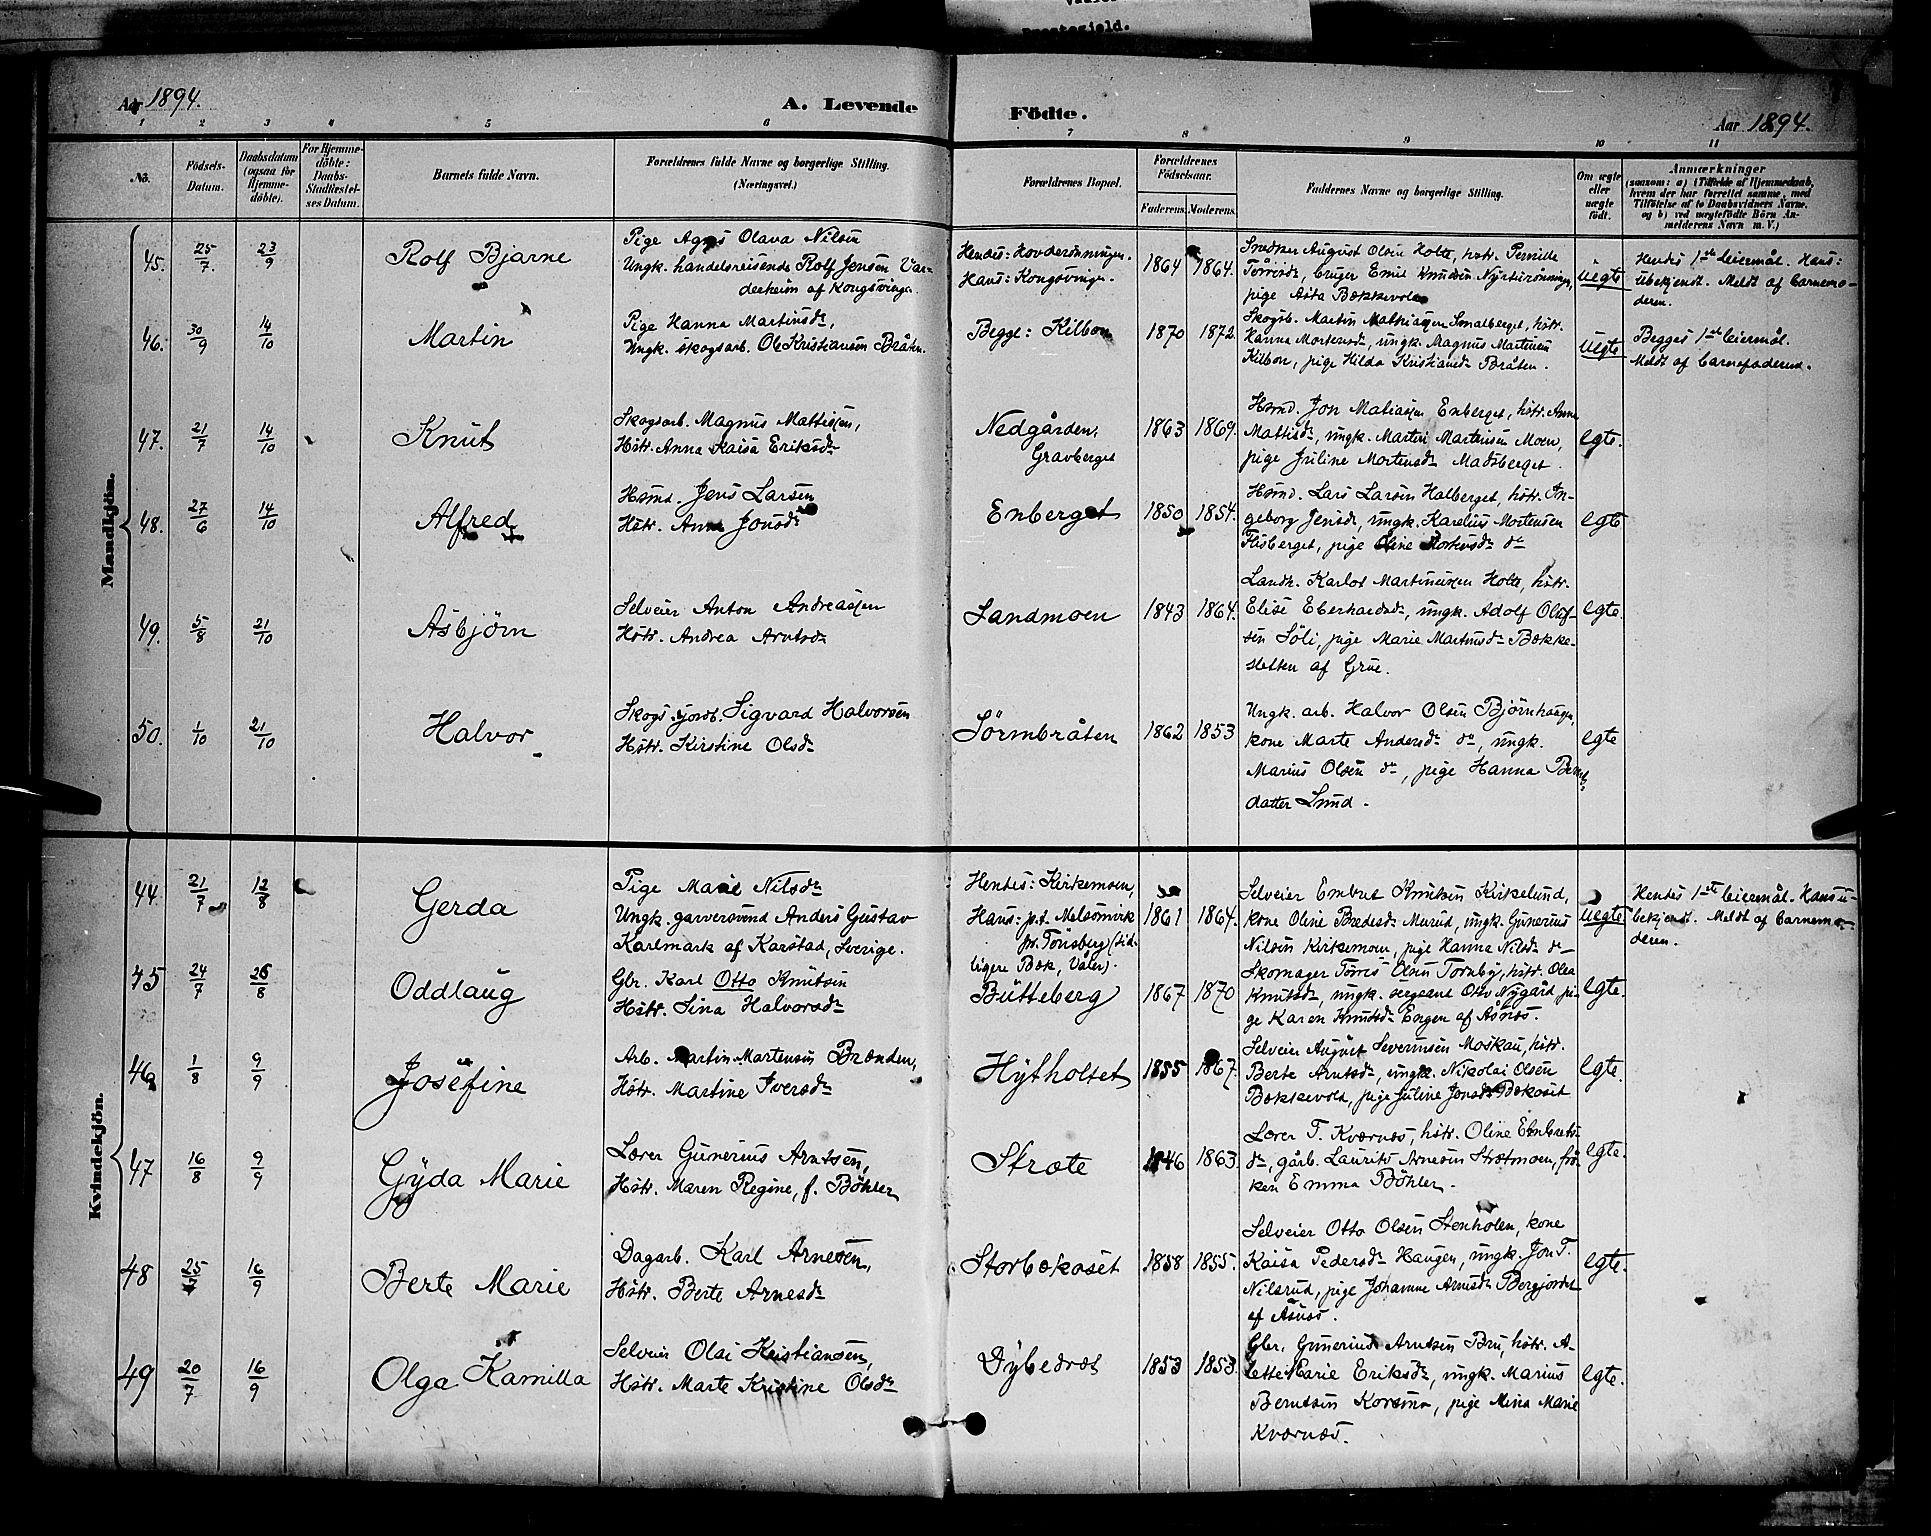 Præstegjeld.
Aar 1894.
A. Levende
Födte.
Aar 1894.
1 2 3 4 5 6 7 8 9 10 11
No.
Födsels-
Datum.
Daabsdatum
(ogsaa for
Hjemme-
döbte).
For Hjemme-
döbte:
Daabs-
Stadfæstel-
ses Datum.
Barnets fulde Navn.
Forældrenes fulde Navne og borgerlige Stilling.
(Næringsvei.)
Forældrenes Bopæl.
Forældrenes
Födselsaar.
Faderens. Moderens.
Faddernes Navne og borgerlige Stilling.
Om ægte
eller
uægte
födt.
Anmærkninger
(saasom: a) i Tilfælde af Hjemmedaab,
hvem der har forrettet samme, med
Tilföielse af to Daabsvidners Navne,
og b) ved uægtefödte Börn An-
melderens Navn m. V.)
Mandkjön.
45. 25/7. 23/9 Rolf Bjarne
Pige Agnes Olava Nilsen
Ungk. handelsreisende Rolf Jensen Var-
derheim af Kongsvinger
Hendes: Hovderönningen.
Hans: Kongsvinger.
1864 1864.
Snedker August Olsen Holte, hstr. Pernille
Törrisdr, bruger Emil Knudsen Nyrörönningen,
pige Asta Bækkevold
uegte
Hendes 1ste leiermål. Hans:
Ubekjendt. Meldt af barnemo-
deren.
46. 30/9 14/10 Martin
Pige Hanna Martinsdr,
Ungk. skogsarb. Ole Kristiansen Bråten.
Begge: Kilbon
1870 1872.
Skogsb. Martin Mathiasen Smalberget, hstr.
Hanna Mortensdr, ungk. Magnus Martinsen
Kilbon, pige Hilda Kristiansdr Bråten.
uegte
Begges 1ste leiermål.
Meldt af barnefaderen.
47. 21/7 14/10 Knut
Skogsarb. Magnus Mattisen,
Hstr. Anna Kaisa Eriksdr
Nedgården,
Gravberget
1863 1869.
Hsmd. Jon Matiasen Enberget, hstr. Anna
Mattisdr, ungk. Martin Martinsen Moen,
pige Juline Mortensdr Madsberget.
egte.
48. 27/6 14/10 Alfred
Hsmd. Jens Larsen
Hstr. Anne Jonsdr
Enberget
1850 1854.
Hsmd. Lars Larsen Halberget, hstr. In-
geborg Jensdr, ungk. Karelius Mortensen
Flisberget, pige Oline Mortensdr do
egte
49. 5/8 21/10 Asbjörn
Selveier Anton Andreassen
Hstr. Andrea Arntsdr
Sandmoen
1843 1864.
Landh. Karlot Martinussen Holte, hstr.
Elise Eberhardsdr, ungk. Adolf Oluf-
sen Söli, pige Marie Martinsdr Bække-
sletten af Grue.
egte.
50. 1/10 21/10 Halvor
Skogs.jordb. Sigvard Halvorsen
Hstr. Kirstine Olsdr
Sörmbråten
1862 1853
Ungk. arb. Halvor Olsen Björnhaugen,
kone Marte Andersdr do, ungk.
Marius Olsen do, pige Hanna Bernt-
datter Lund.
egte
Kvindekjön.
44. 21/7 12/8 Gerda
Pige Marie Nilsdr
Ungk. garversvend Anders Gustav
Karlmark af Karstad, Sverige.
Hendes: Kirkemoen,
Hans: p.t. Melsomvik
pr. Tönsberg (tid-
ligere Bæk, Våler).
1861 1864.
Selveier Embret Knutsen Kirkelund,
kone Oline Bredesdr Murud, ungk. Gunerius
Nilsen Kirkemoen, pige Hanna Nilsdr do
uegte
Hendes 1ste leiermål. Hans u-
bekjendt. Meldt af barnemo-
deren.
45 24/7 26/8 Oddlaug
Gbr. Karl Otto Knutsen
Hstr. Sina Halvorsdr
Bütteberg
1867 1870
Skomager Törris Olsen Tornby, hstr. Olea
Knutsdr, ungk. sergeant Otto Nygård, pi-
ge Karen Knutsdr Engen af Åsnes.
egte.
46 1/8 9/9 Josefine
Arb. Martin Martensen Brænden,
Hstr. Martine Iversdr
Hytholtet
1855 1867.
Selveier August Severinsen Moskau, hstr.
Berte Arntsdr, ungk. Nikolai Olsen
Bækkevold, pige Juline Jonsdr Bekaset
egte.
47 16/8 9/9 Gyda Marie
Lærer Gunerius Arntsen,
Hstr. Maren Regine, f. Böhler
Stræte
1846 1863.
Lærer T. Kværnæs, hstr. Oline Embrets-
dr, gårb. Laurits Arnesen Strætmoen, frö-
ken Emma Böhler.
egte.
48 25/ 16/9 Berte Marie
Dagarb. Karl Arnesen,
Hstr. Berte Arnesdr
Storbekaset
1858 1855.
Selveier Otto Olsen Stenholen, kone
Kaisa Pedersdr Haugen, ungk. Jon T.
Nilsrud, pige Johanne Arnesdr Bergjordet
af Åsnes.
egte.
49 20/7 16/9 Olga Kamilla
Selveier Olai Kristiansen,
Hstr. Marte Kristine Olsdr
Dybedræt
1853 1853.
Gbr. Gunerius Arntsen Bru, hstr. A-
lette Marie Eriksdr, ungk. Marius
Berntsen Korsmo, pige Mina Marie
Kværnæs.
egte.